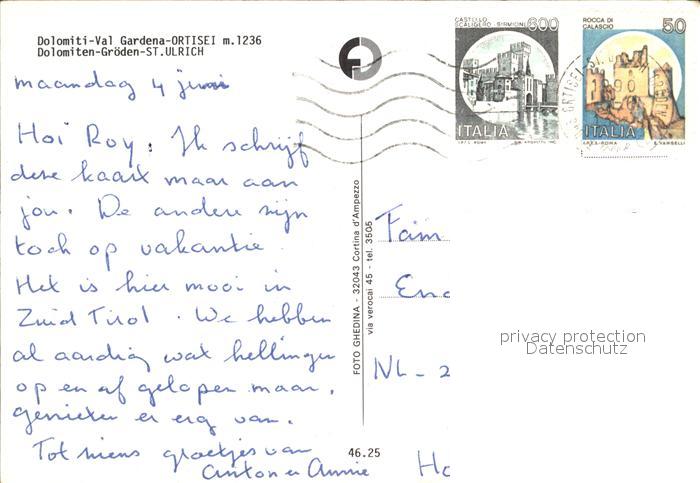 Dolomiti-Val Gardena-ORTISEI m.1236
Dolomiten-Gröden-ST.ULRICH
maandag 4 juni
Hoi Roy, Ik schrijf
deze kaart maar aan
jou. De andere zijn
toch op vakantie.
Het is hier mooi in
Zuid Tirol. We hebben
al aardig wat hellingen
op en af gelopen maar,
genieten er erg van.
Tot ziens groetjes van
Anton en Annie
FOTO GHEDINA - 32043 Cortina d'Ampezzo
via verocai 45 - tel. 3505
46.25
CASTELLO
SCALIGERO - SIRMIONE
600
ITALIA
ROCCA DI
CALASCIO
50
ITALIA
I.P.Z.S. ROMA
E. VANGELLI
ORTISEI
90
Fam
NL - 2
privacy protection
Datenschutz